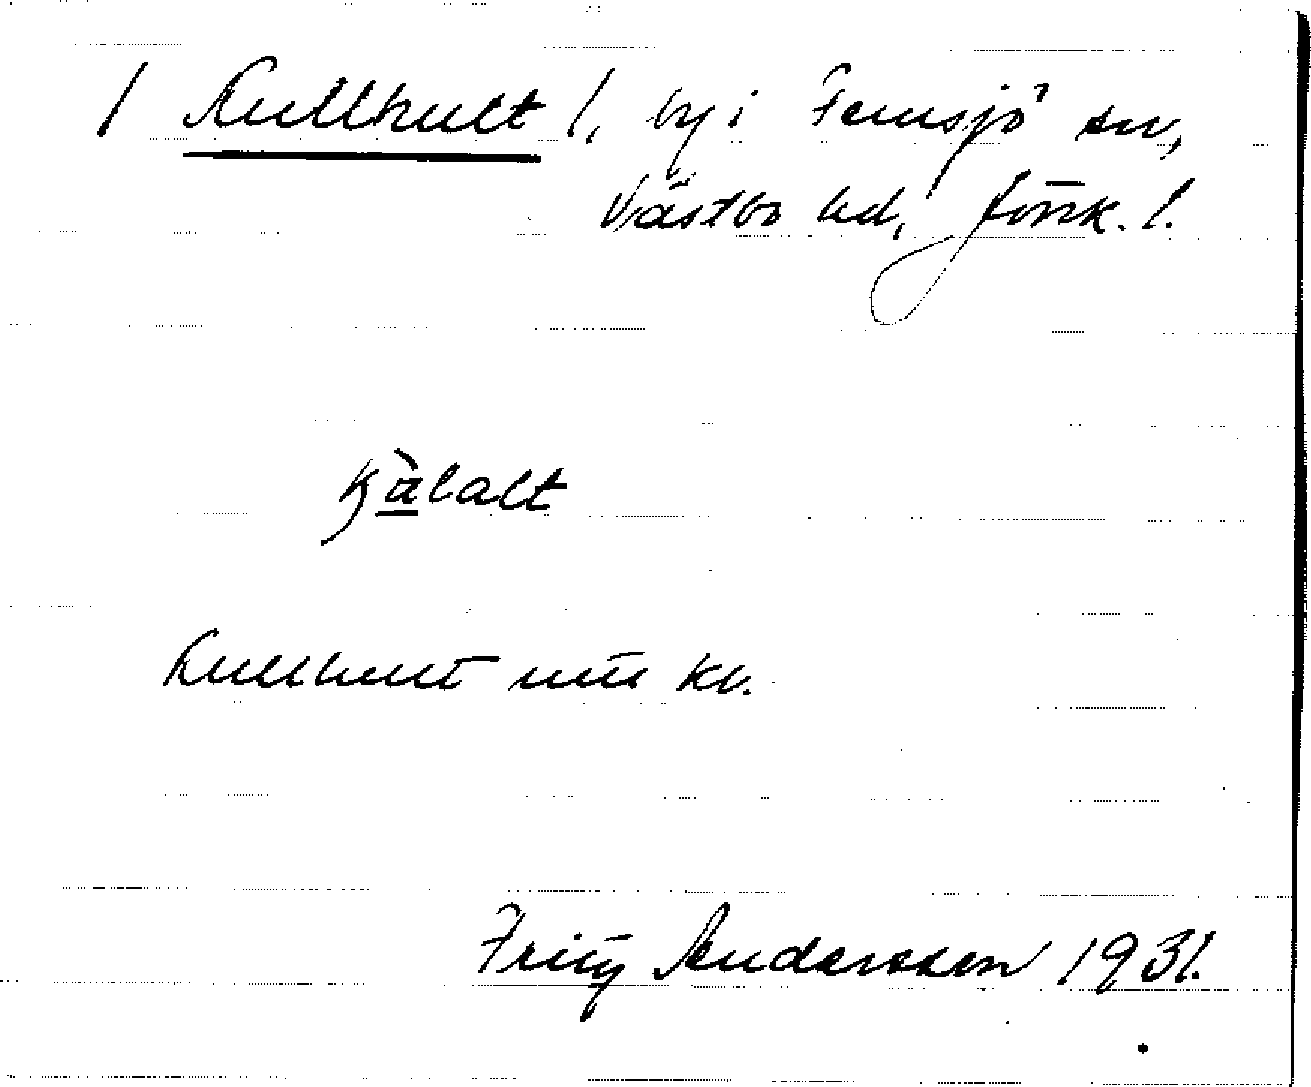 / Kullhult /, by i Femsjö sn,
Västbo hd, Jönk. l.
kàlalt
Kullhult
Fritz Andersson 1931.